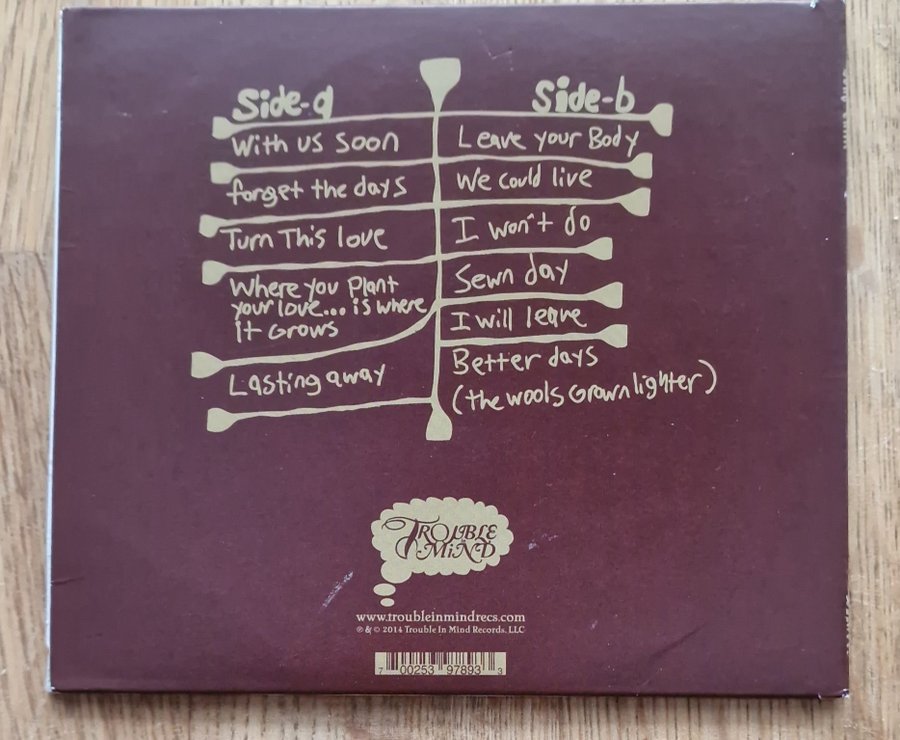 Side-a
With us soon
forget the days
Turn This love
Where you Plant
your love... is where
it Grows
Lasting away
Side-b
Leave your Body
We could live
I won't do
Sewn day
I will leave
Better days
(the wools Grown lighter)
TROUBLE
IN
MIND
www.troubleinmindrecs.com
℗ & © 2014 Trouble In Mind Records, LLC
7 00253 97893 3